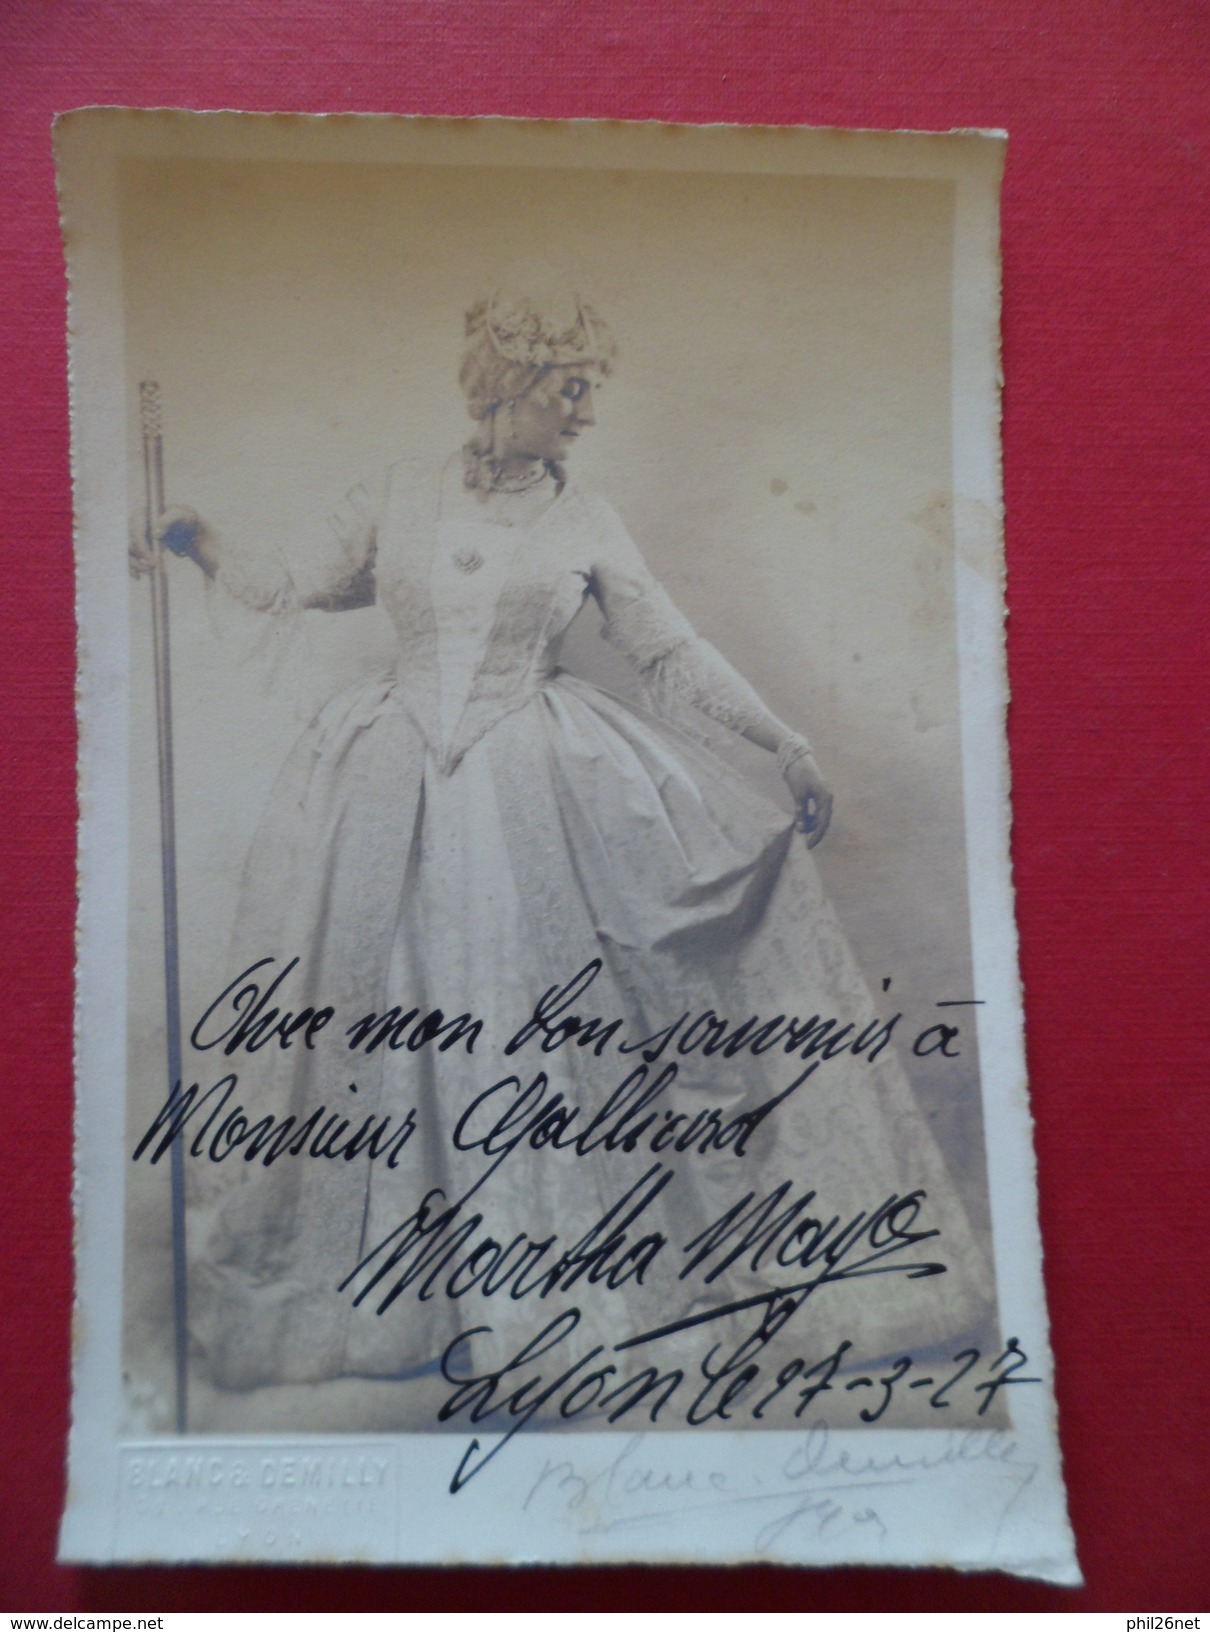 Avec mon bon souvenir à
Monsieur Galliard
Martha Mayo
Lyon le 27-3-27
BLANC & DEMILLY
LYON
Blanc. Demilly
delcampe.net
phil26net